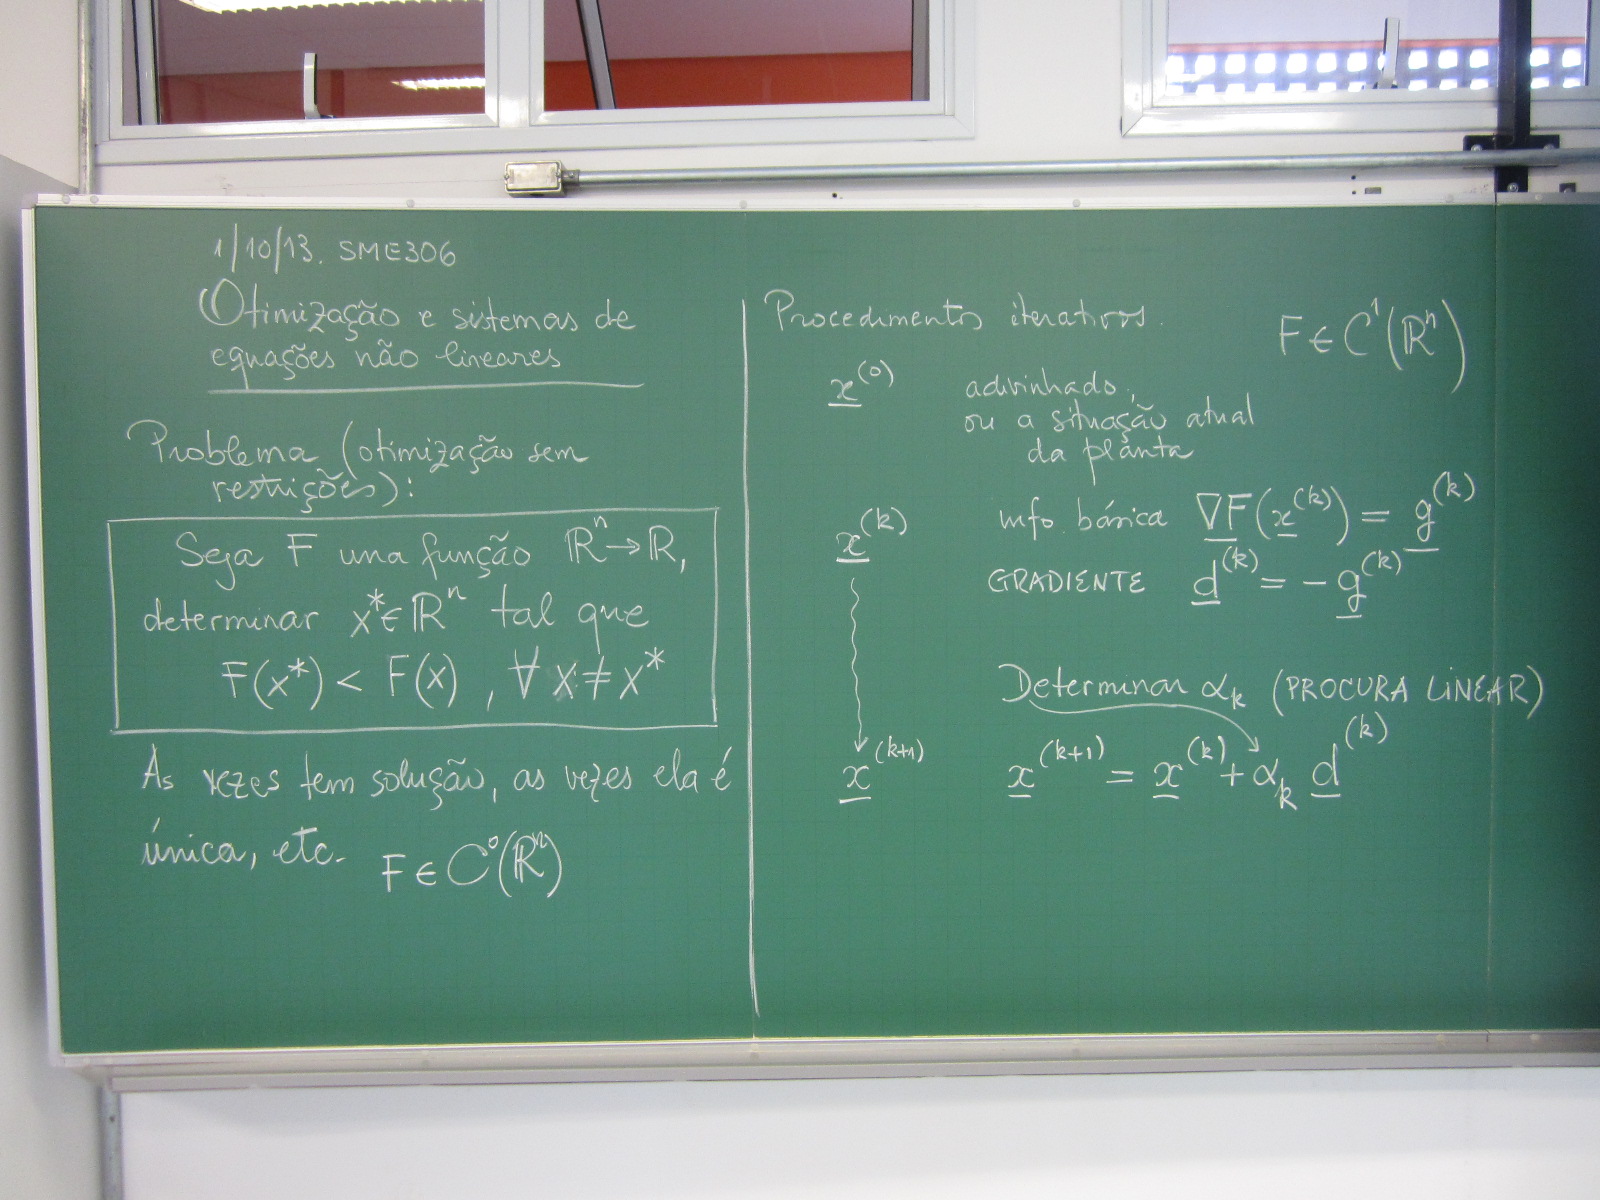 1/10/13. SME306
Otimização e sistemas de
equações não lineares
Problema (otimização sem
restrições):
Seja F una função ℝⁿ→ℝ,
determinar x*∈ℝⁿ tal que
F(x*) < F(x) , ∀ x ≠ x*
As vezes tem solução, as vezes ela é
única, etc. F ∈ C⁰(ℝⁿ)
Procedimentos iterativos. F ∈ C¹(ℝⁿ)
x⁽⁰⁾ adivinhado,
ou a situação atual
da planta
x⁽ᵏ⁾ info básica ∇F(x⁽ᵏ⁾) = g⁽ᵏ⁾
GRADIENTE d⁽ᵏ⁾ = - g⁽ᵏ⁾
Determinar αₖ (PROCURA LINEAR)
x⁽ᵏ⁺¹⁾ x⁽ᵏ⁺¹⁾ = x⁽ᵏ⁾ + αₖ d⁽ᵏ⁾